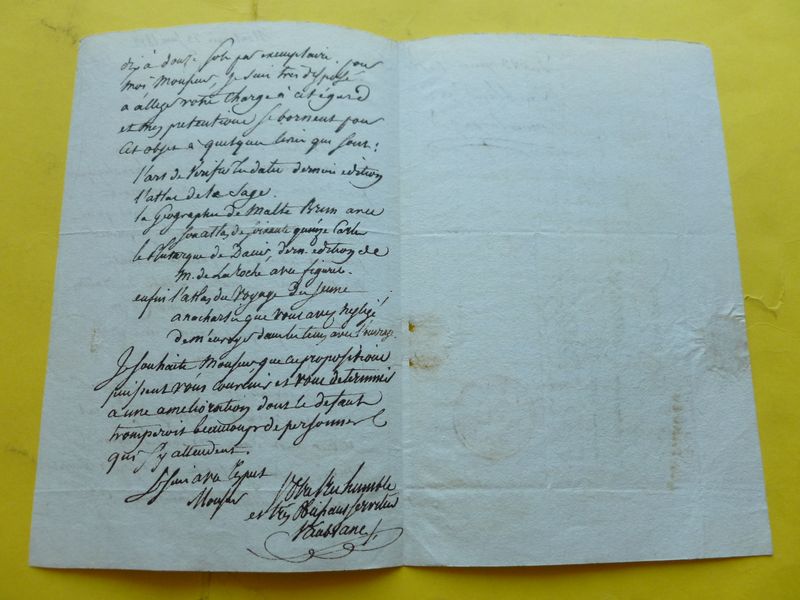 dix à douze sols par exemplaire. pour
moi Monsieur, je suis très disposé
à alleger votre charge à cet égard
et mes pretentions se bornent pour
cet objet à quelques livres qui sont:
l'art de verifier les dates derniere edition
l'atlas de la Sage.
la Geographie de Malte Brun avec
son atlas de soixante quinze Cartes
le Plutarque de Dacier, dern. edition de
M. de la Roche avec figures.
enfin l'atlas du Voyage du jeune
anacharsis que vous avez negligé
de m'envoyer dans les tems avec l'ouvrage.
Je souhaite Monsieur que ces propositions
puissent vous convenir et vous determiner
à une amélioration dont le defaut
tromperoit beaucoup de personnes
qui s'y attendent.
Je suis avec respect
Monsieur
Votre très humble
et très obeissant serviteur